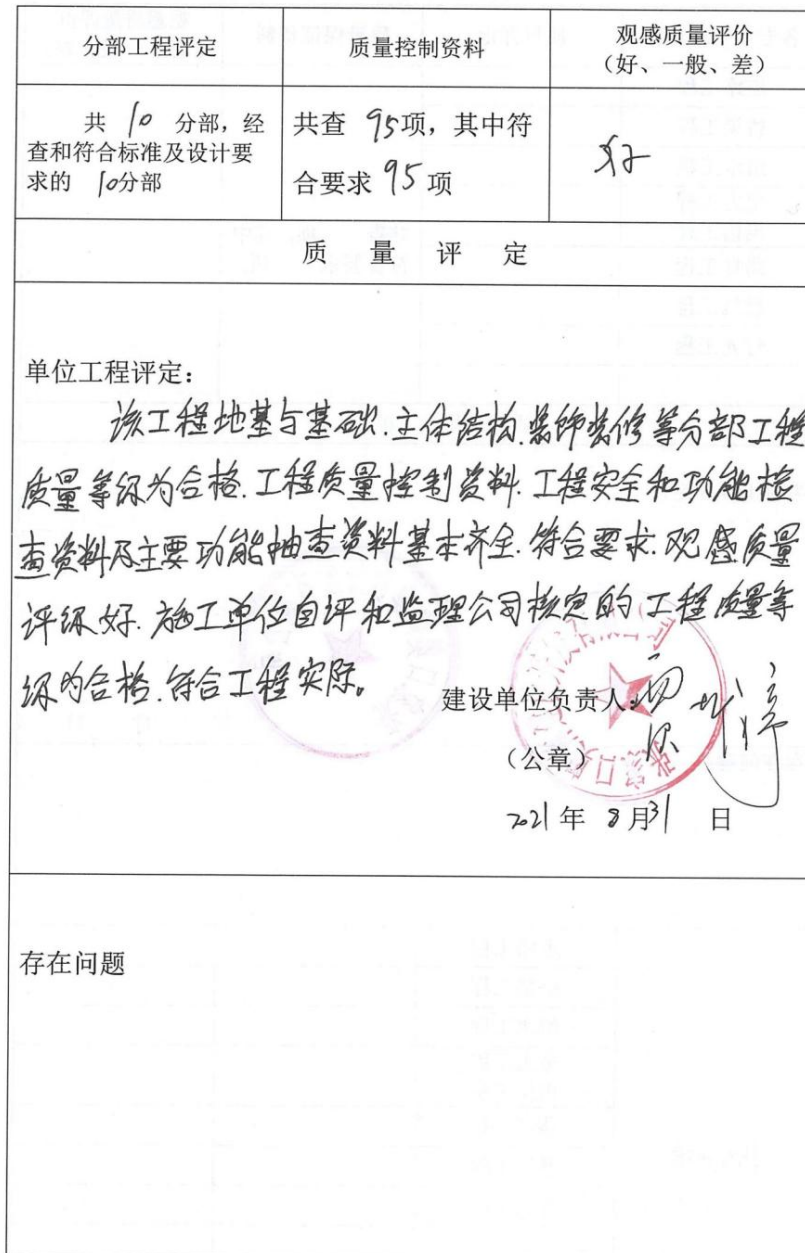 分部工程评定
质量控制资料
观感质量评价
(好、一般、差)
共 10 分部，经
查和符合标准及设计要
求的 10分部
共查 95项，其中符
合要求 95 项
好
质 量 评 定
单位工程评定：
该工程地基与基础.主体结构.装饰装修等分部工程
质量等级为合格.工程质量控制资料.工程安全和功能检
查资料及主要功能抽查资料基本齐全.符合要求.观感质量
评级好.施工单位自评和监理公司核定的工程质量等
级为合格.符合工程实际。
建设单位负责人:
（公章）
2021 年 8 月 31 日
存在问题